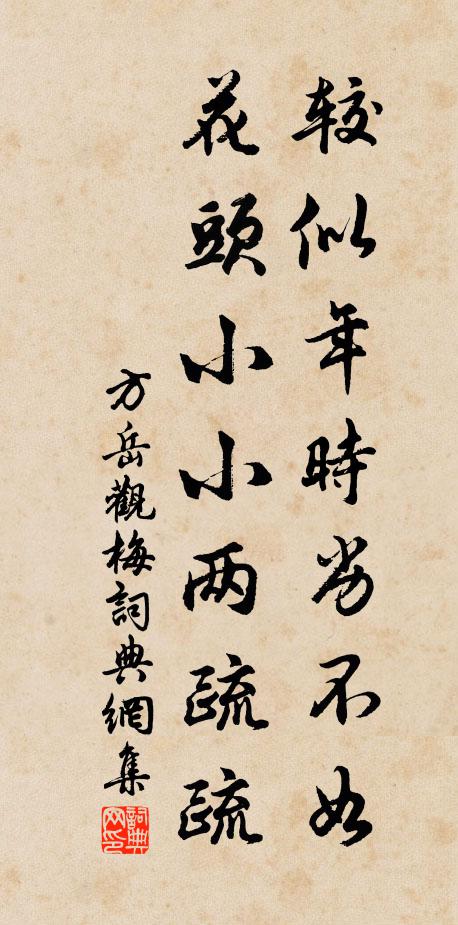 较似年時劣不如
花頭小小两疏疏
方岳觀梅詞典網集
詞典网印